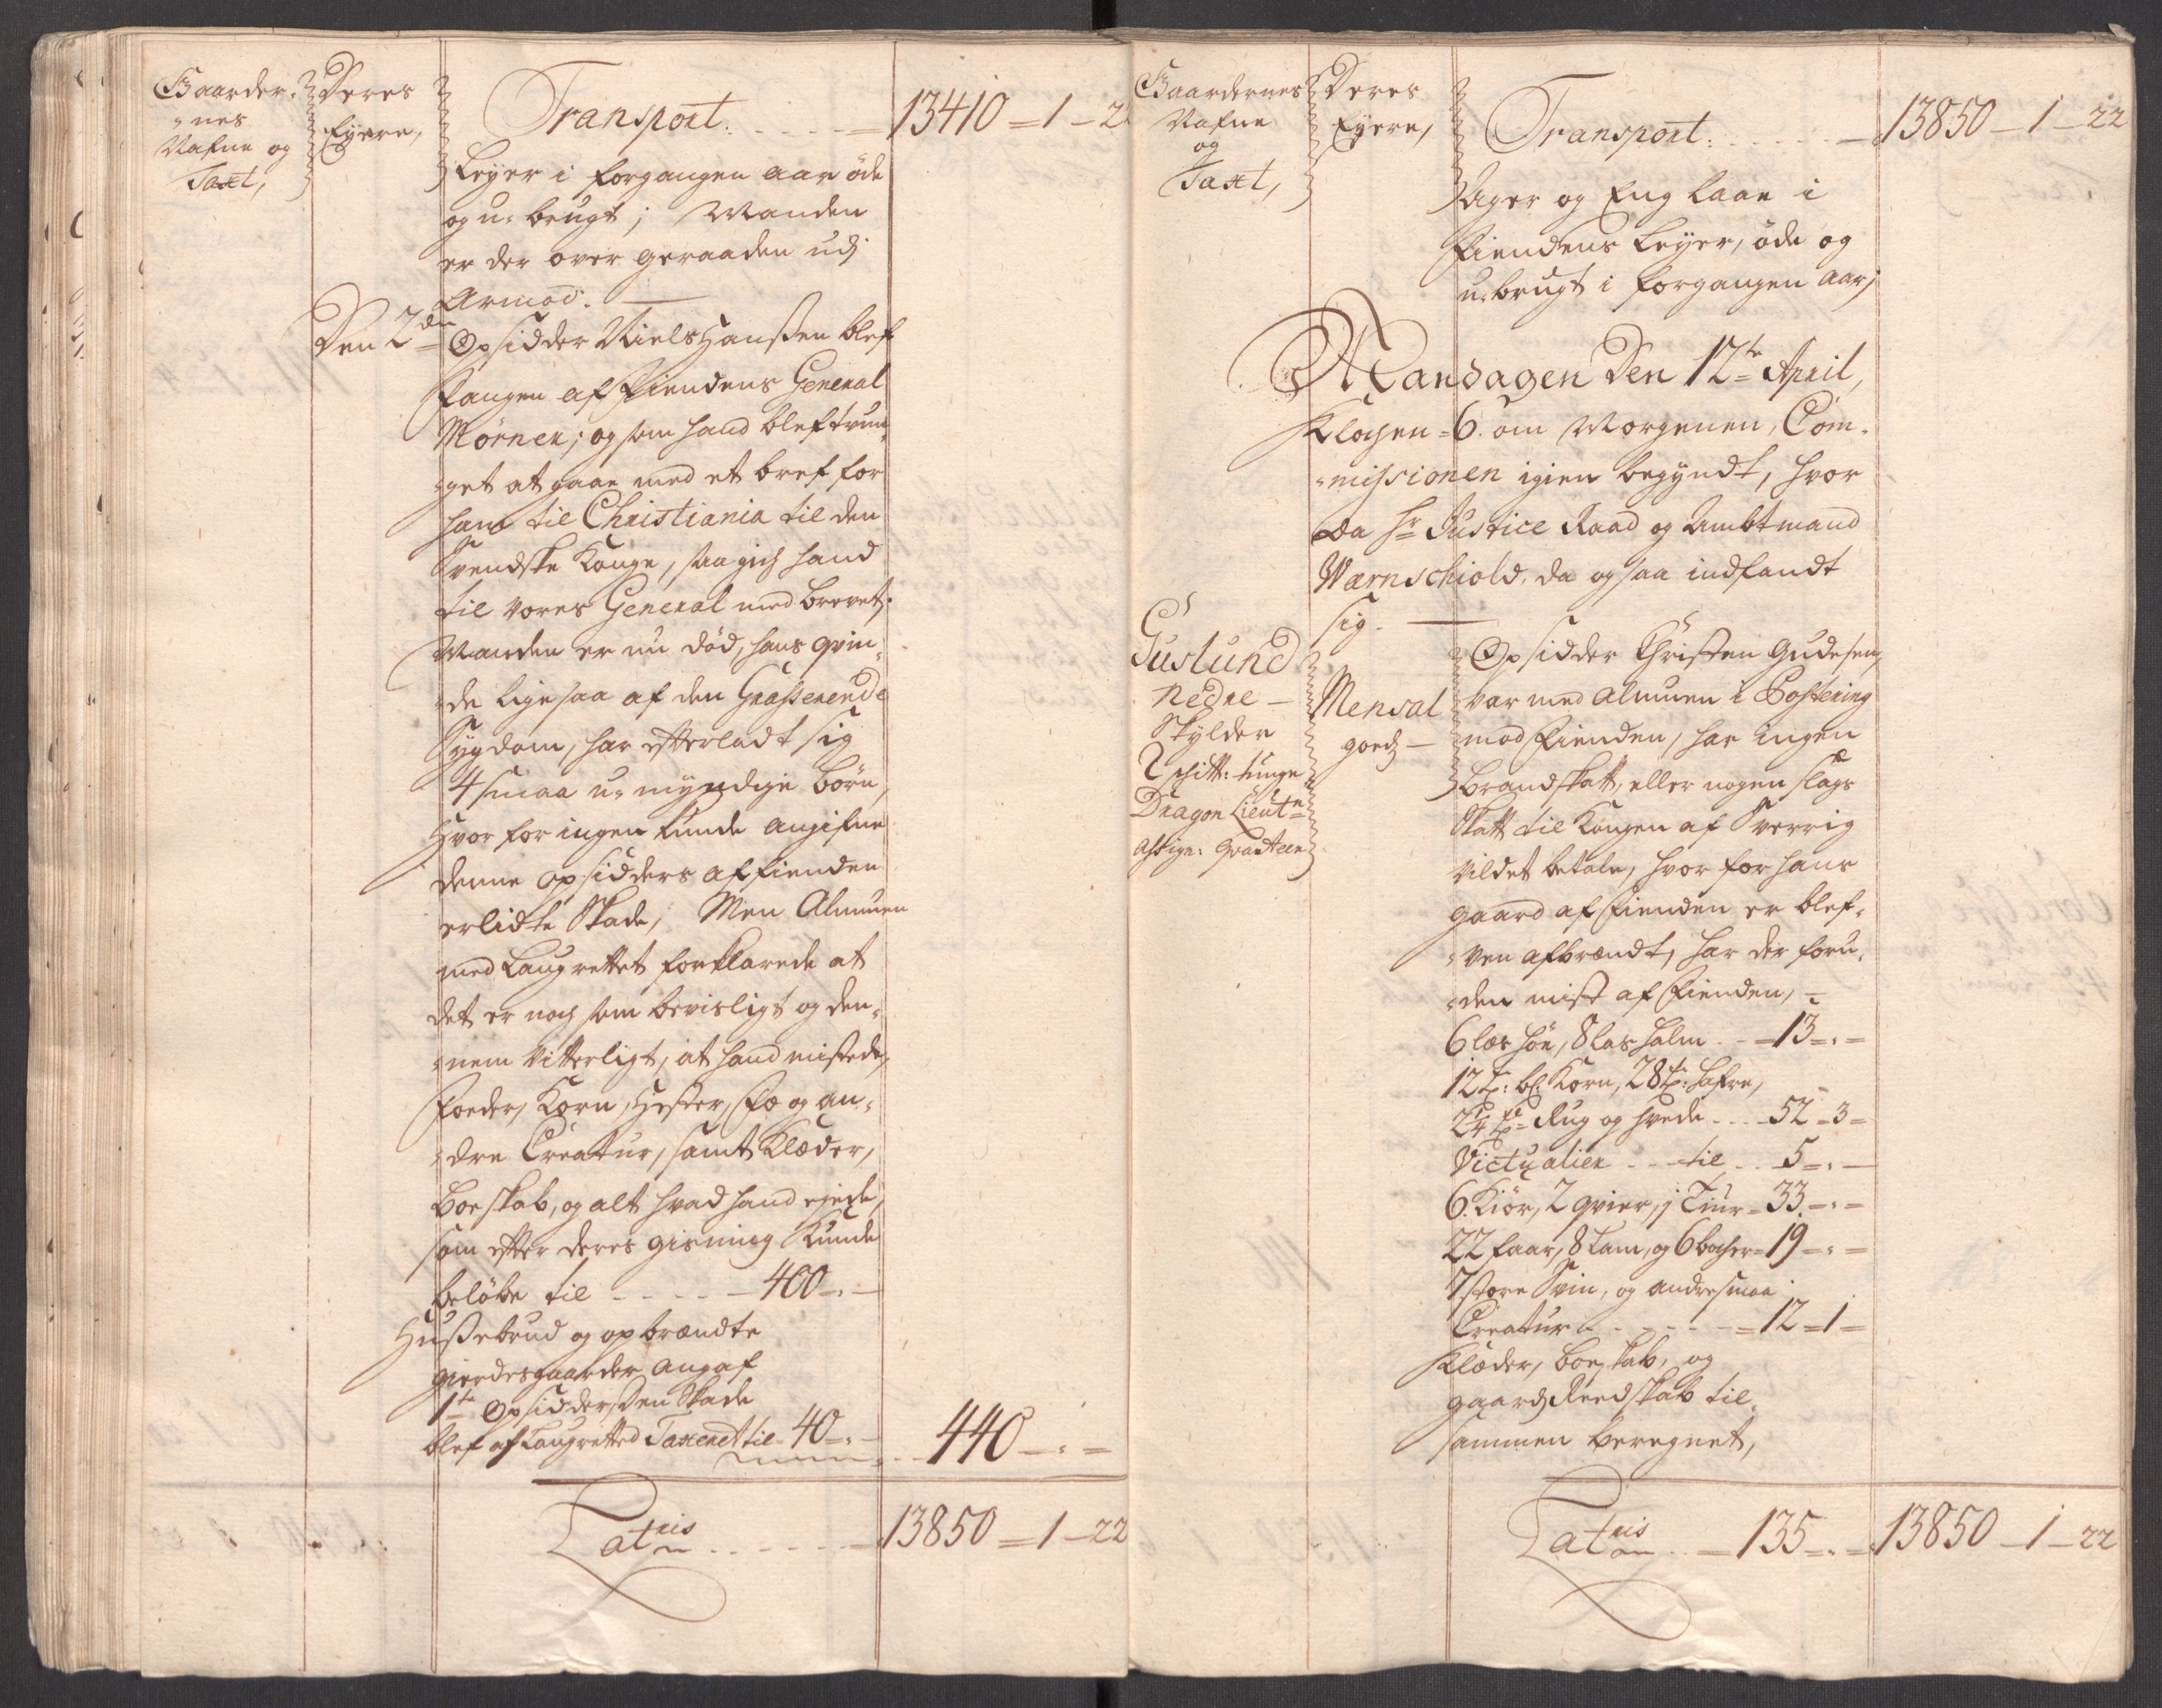 Gaarder-
nes
Nafne og
Taxt,
Deres
Eyere,
Transport. - - - - = 13410 = 1 - 22
Leyer i forgangen aar öde
og u-brugt; Manden
er der over geraaden udj
Armod. —
Den 2den Opsidder Niels Hanßen blef
fangen af Fiendens General
Mörner; og som hand blef tvun-
-get at gaae med et bref for
ham til Christiania til den
Svendske Konge, saa gich hand
til vores General med brevet;
Manden er nu död, hans qvin-
-de ligesaa af den Graßerende
Sygdom, har efterladt sig
4 smaa u-myndige börn,
Hvor for ingen kunde angifue
denne opsidders af fienden
erlidte Skade; Men Almuen
med Laugrettet forklarede at
det er noch som bevisligt og den-
-nem vitterligt, at hand mistede
Foeder, Korn, Hester, Fæ og an-
-dre Creatur, samt Klæder,
boeskab, og alt hvad hand eyede,
som efter deres gisning Kunde
belöbe til - - - - - 400 - . -
Hußebrud og opbrændte
gierdesgaarder angaf
1te Opsidder, den Skade
blef af Laugretted Taxeret til - 40 - . - 440 - . =
Latris - - - - - - = 13850 = 1 - 22
Gaardernes
Nafne
og
Taxt,
Deres
Eyere,
Transport. - - - - - 13850 - 1 - 22
Ager og Eng laae i
Fiendens Leyer, öde og
u-brugt i forgangen aar;
Mandagen Den 12te April,
Klochen = 6. om Morgenen, Com-
-mißionen igien begyndt, hvor
da Hr Justice Raad og Ambtmand
Wærnschiold, da og saa indfandt
sig. —
Guslund
Nedre —
Skylder
2 schitt: tunge
Dragon Lieutn
Assign: Qvarteer
Mensal
goedz —
Opsidder Christen Gudesen,
var med almuen i Postering
mod Fienden, har ingen
brandskatt, eller nogen slags
Skatt til Kongen af Sverrig
vildet betale, hvor for hans
gaard af Fienden er blef-
-ven afbrændt, har der foru-
-den mist af Fienden, -
6 læs höe, 8 læs halm - - 13 - . =
12 t: bl: Korn, 28 t: hafre,
2 1/4 t Rug og hvede - - - 52 - 3 =
Victualier - - - til - - 5 = . -
6. Kiör, 2 qvier, 1 Tiur = 33. - . =
22 faar, 8 Lam, og 6 bocher = 19 - . =
7 store Svin, og andre smaa
Creatur - - - - - - - = 12 = 1 =
Klæder, boeskab, og
gaardz Reedskab til-
sammen beregnet,
Latris - - = 135 = . = 13850 - 1 - 22